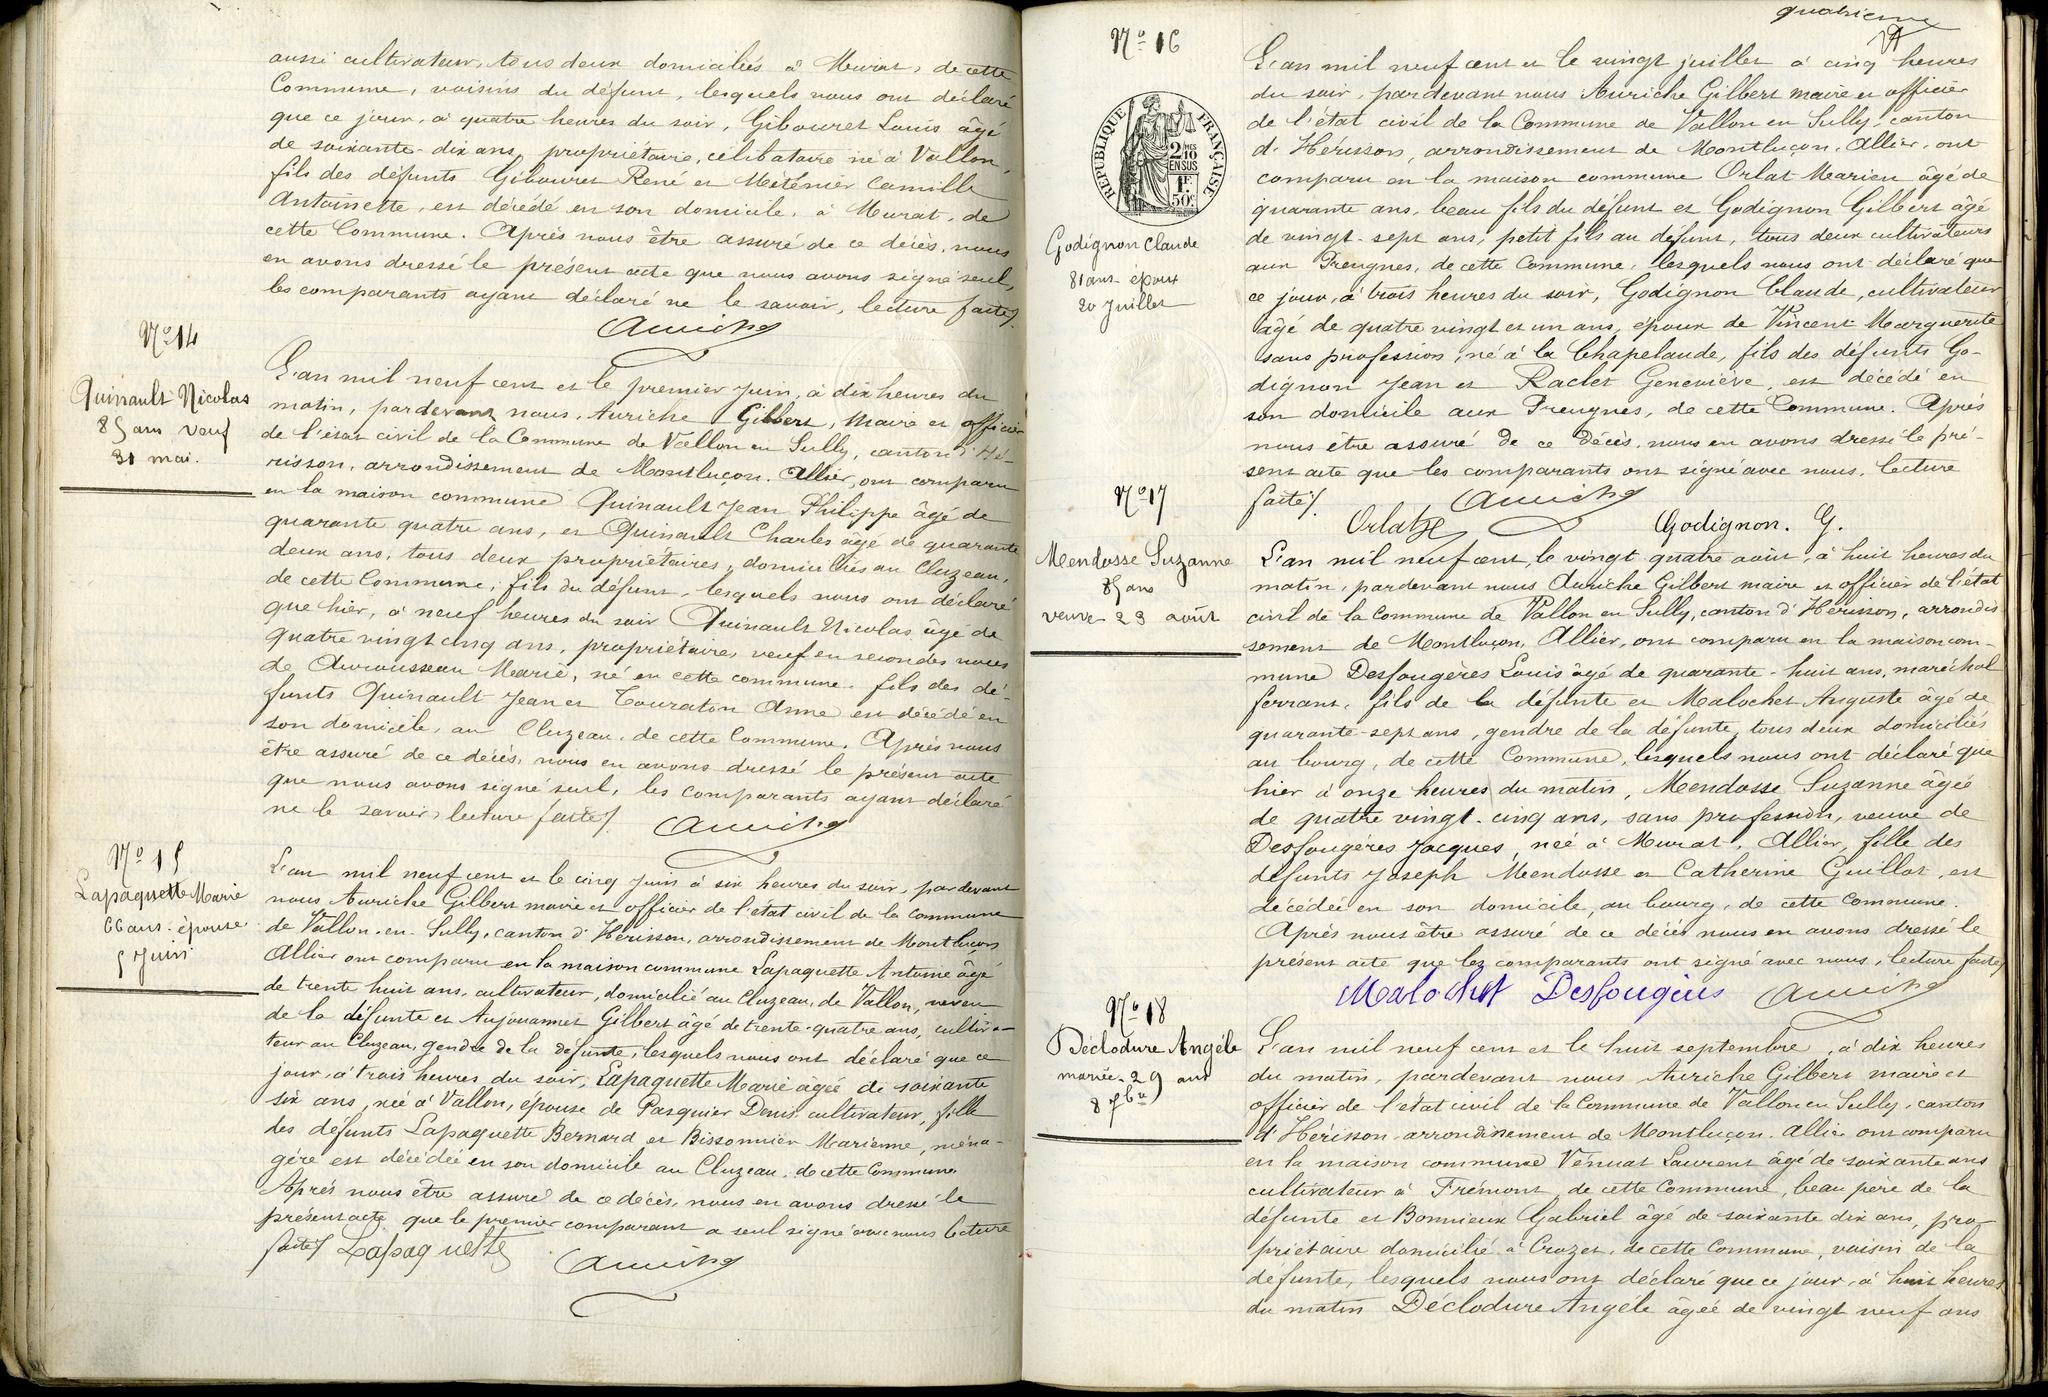 aussi cultivateur, tous deux domiciliés à Murat, de cette
Commune, voisins du défunt, lesquels nous ont déclaré
que ce jour, à quatre heures du soir, Gibouret Louis âgé
de soixante-dix ans, propriétaire, célibataire né à Vallon,
fils des défunts Gibouret René et Méténier Camille
Antoinette, est décédé en son domicile, à Murat, de
cette Commune. Après nous être assuré de ce décès, nous
en avons dressé le présent acte que nous avons signé seul,
les comparants ayant déclaré ne le savoir, lecture faite.
Auriche
No 14
Quinault Nicolas
85 ans veuf
31 mai.
L'an mil neuf cent et le premier Juin, à dix heures du
matin, pardevant nous, Auriche Gilbert, Maire et officier
de l'état civil de la Commune de Vallon en Sully, canton d'Hé-
risson, arrondissement de Montluçon, Allier, ont comparu
en la maison commune Quinault Jean Philippe âgé de
quarante quatre ans, et Quinault Charles âgé de quarante
deux ans, tous deux propriétaires, domiciliés au Cluzeau,
de cette Commune, fils du défunt, lesquels nous ont déclaré
que hier, à neuf heures du soir Quinault Nicolas, âgé de
quatre vingt cinq ans, propriétaire, veuf en secondes noces
de Aurousseau Marie, né en cette commune, fils des dé-
funts Quinault Jean et Touraton Anne est décédé en
son domicile, au Cluzeau, de cette Commune. Après nous
être assuré de ce décès, nous en avons dressé le présent acte
que nous avons signé seul, les comparants ayant déclaré
ne le savoir, lecture faite.
Auriche
No 15
Lapaquette Marie
66 ans épouse
5 Juin
L'an mil neuf cent et le cinq Juin à six heures du soir, pardevant
nous Auriche Gilbert maire et officier de l'état civil de la commune
de Vallon-en-Sully, canton d'Hérisson, arrondissement de Montluçon
Allier ont comparu en la maison commune Lapaquette Antoine âgé
de trente huit ans, cultivateur, domicilié au Cluzeau, de Vallon, neveu
de la défunte et Aujouannet Gilbert âgé de trente-quatre ans, cultiva-
teur au Cluzeau, gendre de la défunte, lesquels nous ont déclaré que ce
jour, à trois heures du soir, Lapaquette Marie âgée de soixante
six ans, née à Vallon, épouse de Pasquier Denis cultivateur, fille
des défunts Lapaquette Bernard et Bissonnier Marienne, ména-
gère est décédée en son domicile au Cluzeau, de cette Commune.
Après nous être assuré de ce décès, nous en avons dressé le
présent acte que le premier comparant a seul signé avec nous lecture
faite. Lapaquette
Auriche
quatrième
No 16
RÉPUBLIQUE FRANÇAISE
2/10 MES
EN SUS
1F.
50C.
Godignon Claude
81 ans époux
20 Juillet
L'an mil neuf cent et le vingt juillet à cinq heures
du soir, pardevant nous Auriche Gilbert maire et officier
de l'état civil de la Commune de Vallon en Sully, canton
d'Hérisson, arrondissement de Montluçon, Allier, ont
comparu en la maison commune Orlat Marien âgé de
quarante ans, beau fils du défunt et Godignon Gilbert âgé
de vingt-sept ans, petit fils au défunt, tous deux cultivateurs
aux Preugnes, de cette Commune, lesquels nous ont déclaré que
ce jour, à trois heures du soir, Godignon Claude, cultivateur
âgé de quatre vingt et un ans, époux de Vincent Marguerite
sans profession, né à la Chapelaude, fils des défunts Go-
dignon Jean et Raclet Geneviève, est décédé en
son domicile aux Preugnes, de cette Commune. Après
nous être assuré de ce décès, nous en avons dressé le pré-
sent acte que les comparants ont signé avec nous, lecture
faite.
Auriche
Orlat
Godignon. G.
No 17
Mendosse Suzanne
85 ans
veuve 23 août
L'an mil neuf cent, le vingt quatre août, à huit heures du
matin, pardevant nous Auriche Gilbert maire et officier de l'état
civil de la Commune de Vallon en Sully, canton d'Hérisson, arrondis
sement de Montluçon, Allier, ont comparu en la maison com-
mune Desfougères Louis âgé de quarante-huit ans, maréchal
ferrant, fils de la défunte et Malochet Auguste âgé de
quarante-sept ans, gendre de la défunte, tous deux domiciliés
au bourg, de cette Commune, lesquels nous ont déclaré que
hier à onze heures du matin, Mendosse Suzanne âgée
de quatre vingt-cinq ans, sans profession, veuve de
Desfougères Jacques, née à Murat, Allier, fille des
défunts Joseph Mendosse et Catherine Guillot, est
décédée en son domicile, au bourg, de cette Commune.
Après nous être assuré de ce décès nous en avons dressé le
présent acte que les comparants ont signé avec nous, lecture faite
Malochet Desfougères Auriche
No 18
Déclodure Angèle
mariée 29 ans
8 7bre
L'an mil neuf cent et le huit septembre, à dix heures
du matin, pardevant nous Auriche Gilbert maire et
officier de l'état civil de la Commune de Vallon en Sully, canton
d'Hérisson arrondissement de Montluçon, Allier ont comparu
en la maison commune Vénuat Laurent âgé de soixante ans
cultivateur à Frémont, de cette Commune, beau père de la
défunte et Bonnieux Gabriel âgé de soixante dix ans, pro-
priétaire domicilié à Crozet, de cette Commune, voisin de la
défunte, lesquels nous ont déclaré que ce jour, à huit heures
du matin Déclodure Angèle âgée de vingt neuf ans